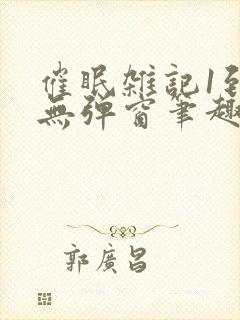 催眠雑記1至
無彈窗筆趣
郭廣昌